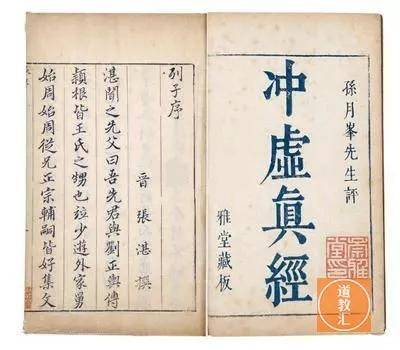 孫月峯先生評
冲虛眞經
雅堂藏板
列子序
晉 張湛撰
湛聞之先父曰吾先君與劉正輿傅
頴根皆王氏之甥也竝少遊外家舅
始周始周從兄正宗輔嗣皆好集文
道教汇